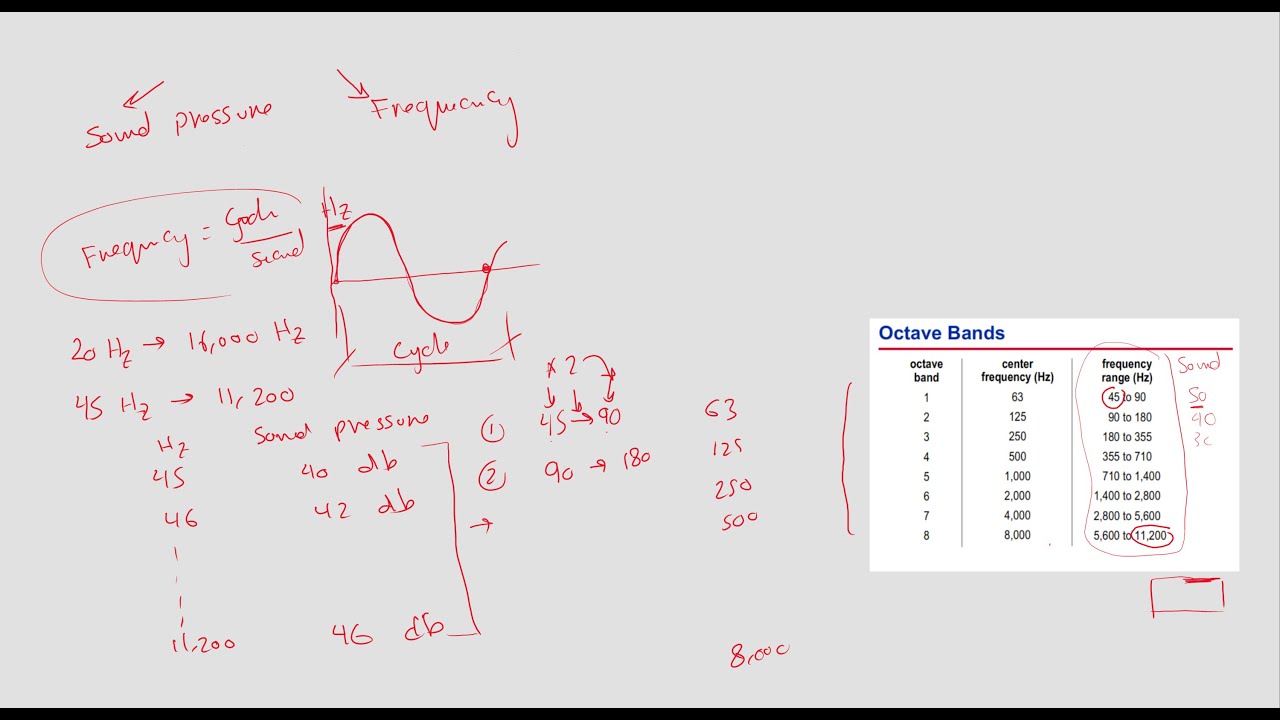 Sound pressure
Frequency
Frequency = Cycle
Second
Hz
Cycle
20 Hz → 16,000 Hz
45 Hz → 11,200
Hz
Sound pressure
45
40 db
46
42 db
11,200
46 db
× 2
① 45 → 90
② 90 → 180
→
63
125
250
500
8,000
Octave Bands
octave band center frequency (Hz) frequency range (Hz)
1 63 45 to 90
2 125 90 to 180
3 250 180 to 355
4 500 355 to 710
5 1,000 710 to 1,400
6 2,000 1,400 to 2,800
7 4,000 2,800 to 5,600
8 8,000 5,600 to 11,200
Sound
50
40